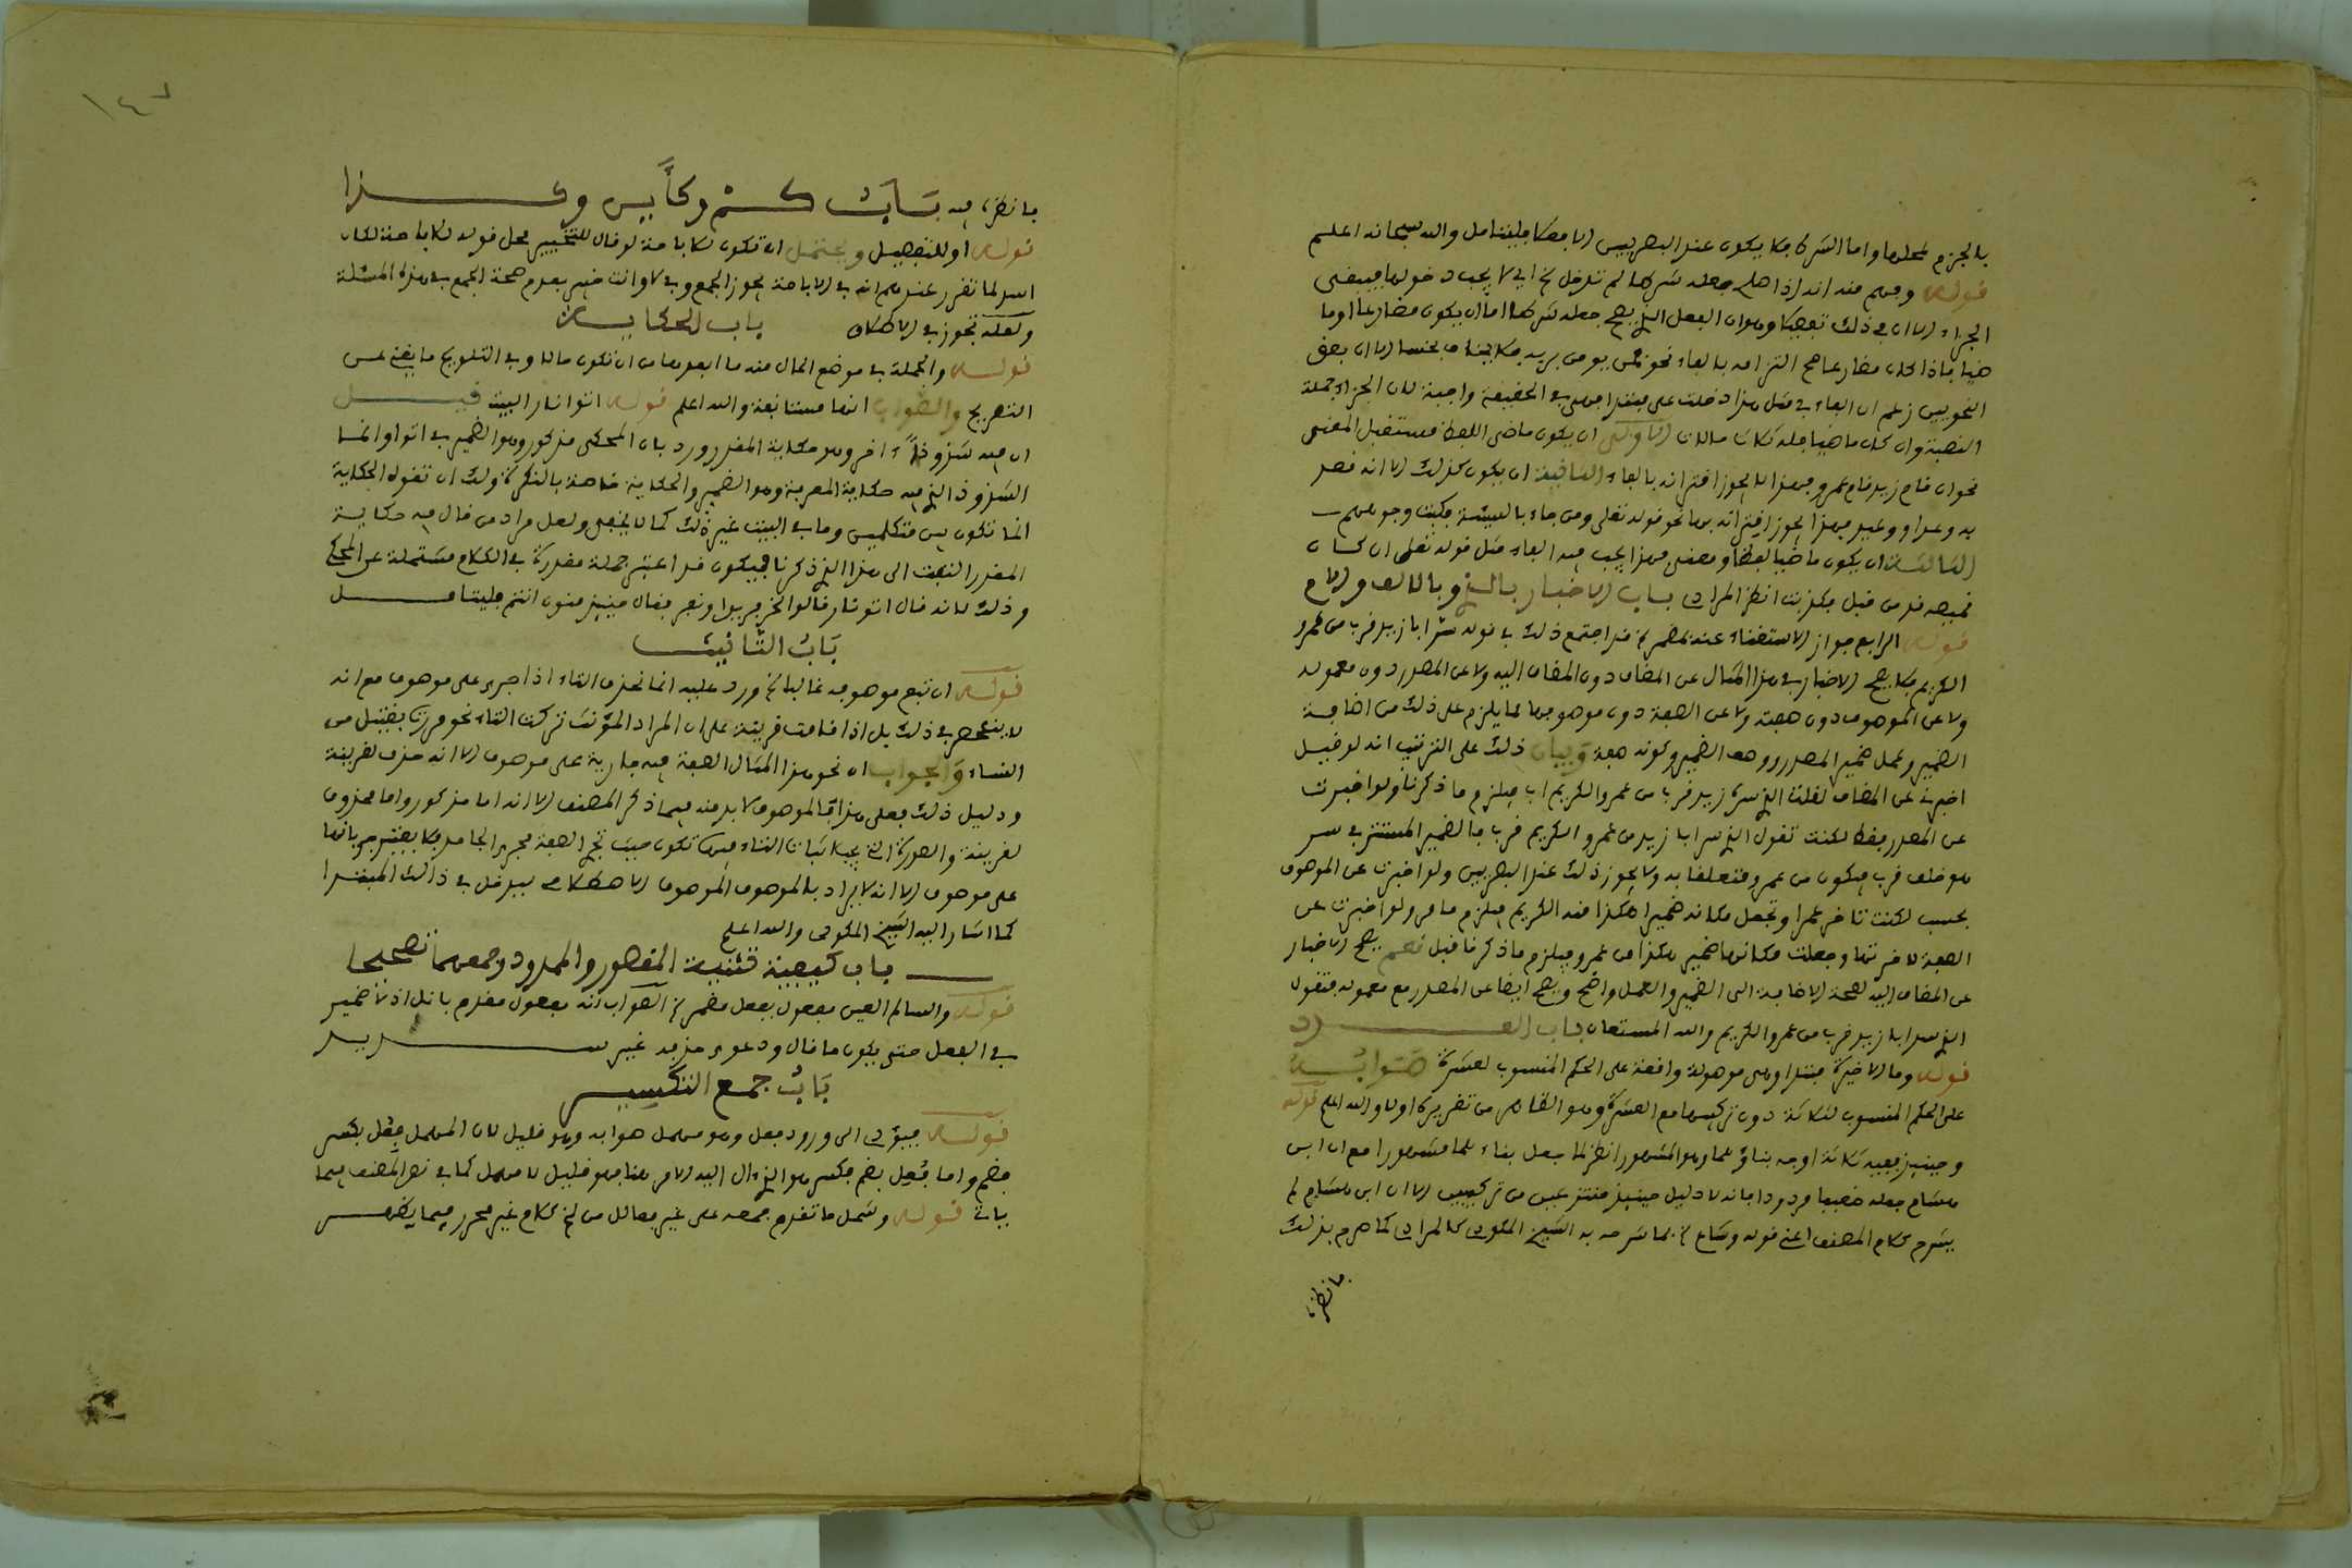 بالجزم لمحلها واما الشرط فلا يكون عند البصريين الا فعلا فليتامل والله سبحانه اعلم
قوله وفهم منه انه اذا صلح جعله شرطا لم تدخل الخ اي لا يجب دخولها فيبقى
الجزاء الا ان في ذلك تفصيلا وهو ان الفعل الذي يصح جعله شرطا اما ان يكون مضارعا او ما
ضيا فاذا كان مضارعا صح التزامه بالفاء نحو فمن يومن بربه فلا يخاف بخسا الا ان بعض
النحويين زعم ان الفاء في مثل هذا دخلت على مبتدا فهي في الحقيقة واجبة لان الجزاء جملة
اسمية وان كان ماضيا فله ثلاث حالات الاولى ان يكون ماضي اللفظ مستقبل المعنى
نحو ان قام زيد قام عمرو فهذا لا يجوز اقترانه بالفاء الثانية ان يكون كذلك الا انه قصد
به وعد او وعيد فهذا يجوز اقترانه بها نحو قوله تعلى ومن جاء بالسيئة فكبت وجوههم
الثالثة ان يكون ماضيا لفظا ومعنى فهذا يجب فيه الفاء مثل قوله تعلى ان كان
قميصه قد من قبل فكذبت انظر المرادي باب الاخبار بالذي وبالالف واللام
قوله الرابع جواز الاستغناء عنه بمضمر قد اجتمع ذلك في قوله سر ابا زيد قرب من عمرو
الكريم فلا يصح الاخبار في هذا المثال عن المضاف دون المضاف اليه ولا عن المصدر دون معموله
ولا عن الموصوف دون صفته ولا عن الصفة دون موصوفها لما يلزم على ذلك من اضافة
الضمير وعمل ضمير المصدر ووصف الضمير وكونه صفة وبيان ذلك على الترتيب انه لو قيل
اخبر لي عن المضاف لقلت الذي سره زيد قرب من عمرو الكريم اب فيلزم ما ذكرنا ولو اخبرت
عن المصدر فقط لكنت تقول الذي سر ابا زيد من عمرو الكريم قرب فالضمير المستتر في سر
هو خلف قرب فيكون من عمرو متعلقا به ولا يجوز ذلك عند البصريين ولو اخبرت عن الموصوف
بحسب لكنت تاخر عمرا وتجعل مكانه ضميرا هكذا منه الكريم فيلزم ما مر ولو اخبرت عن
الصفة لاخرتها وجعلت مكانها ضمير هكذا من عمرو فيلزم ما ذكرنا قبل نعم يصح الاخبار
عن المضاف اليه لصحة الاضافة الى الضمير والعمل واضح ويصح ايضا عن المصدر مع معموله فتقول
الذي سر ابا زيد قرب من عمرو الكريم والله المستعان باب العدد
قوله وما الاخيرة مبتدا وهي موصولة واقعة على الحكم المنسوب لعشرة صوابه
على الحكم المنسوب لثلاثة دون تركيبها مع العشرة وهو الظاهر من تقريره اولا والله اعلم قوله
وحينئذ ففيه ثلاثة اوجه بناؤهما وهو المشهور انظر لما جعل بناءهما مشهورا مع ان ابن
هشام جعله ضعيفا مردودا بانه لا دليل حينئذ منتزعين من تركيبين الا ان ابن هشام لم
يشرح كلام المصنف اعني قوله وشاع بما شرحه به الشيخ المكودي كالمرادي كما صرح بذلك
فانظره
١٤٧
فانظره فيه باب كم وكأين وكذا
قوله او للتفصيل ويحتمل ان تكون للاباحة لو قال للتخيير محل قوله للاباحة لكان
اسد لما تقرر عندهم انه في الاباحة يجوز الجمع وفي لا وانت خبير بعدم صحة الجمع في هذه المسئلة
ولعله تجوز في الاطلاق باب الحكاية
قوله والجملة في موضع الحال منه ما ابعدها من ان تكون حالا وفي التلويح ما يغني عن
التصريح والصواب انها مستانفة والله اعلم قوله اتوا نار البيت قيل
ان فيه شذوذا اخر وهو حكاية المقدر ورد بان المحكي مذكور وهو الضمير في اتوا وانما
الشذوذ الذي فيه حكاية المعرفة وهو الضمير والحكاية خاصة بالنكرة ولك ان تقول الحكاية
انما تكون بين متكلمين وما في البيت غير ذلك كما لا يخفى ولعل مراد من قال فيه حكاية
المقدر التفت الى هذا الذي ذكرنا فيكون قد اعتبر جملة مقدرة في الكلام مشتملة على المحكي
وذلك لانه قال اتوا نار قالوا نحن فريد او نفر فقال حينئذ منون انتم فليتامل
باب التانيث
قوله ان تبع موصوفه غالبا الخ ورد عليه انما تحذف التاء اذا جرى على موصوف مع انه
لا ينحصر في ذلك بل اذا قامت قرينة على ان المراد المؤنث تركت التاء نحو مررت بقتيل من
النساء والجواب ان نحو هذا المثال الصفة فيه جارية على موصوف الا انه حذف لقرينة
ودليل ذلك فعلى هذا فالموصوف لا بد منه فيما ذكر المصنف الا انه اما مذكور واما محذوف
لقرينة والصورة التي يجب اثبات التاء فيها تكون حيث تجر الصفة مجرى الجامد فلا يعتبر جريانها
على موصوف الا انه لا يراد بالموصوف الموصوف الاصطلاحي فيدخل في ذلك المبتدا
كما اشار اليه الشيخ المكودي والله اعلم
باب كيفية تثنية المقصور والممدود وجمعهما تصحيحا
قوله والسالم العين مفعول بفعل مضمر الصواب انه مفعول مقدم بانل اذ لا ضمير
في الفعل حتى يكون ما قال ودعوى حذفه غير سديد
باب جمع التكسير
قوله فيؤدي الى ورود فعل وهو مهمل صوابه وهو قليل لان المهمل فعل بكسر
فضم واما فعل بضم فكسر هو الذي ال اليه الامر هنا فهو قليل لا مهمل كما في نص المصنف فيما
ياتي قوله وشمل ما تقدم جمعه على غير فعالل من الخ كلام غير محرر فيما يظهر